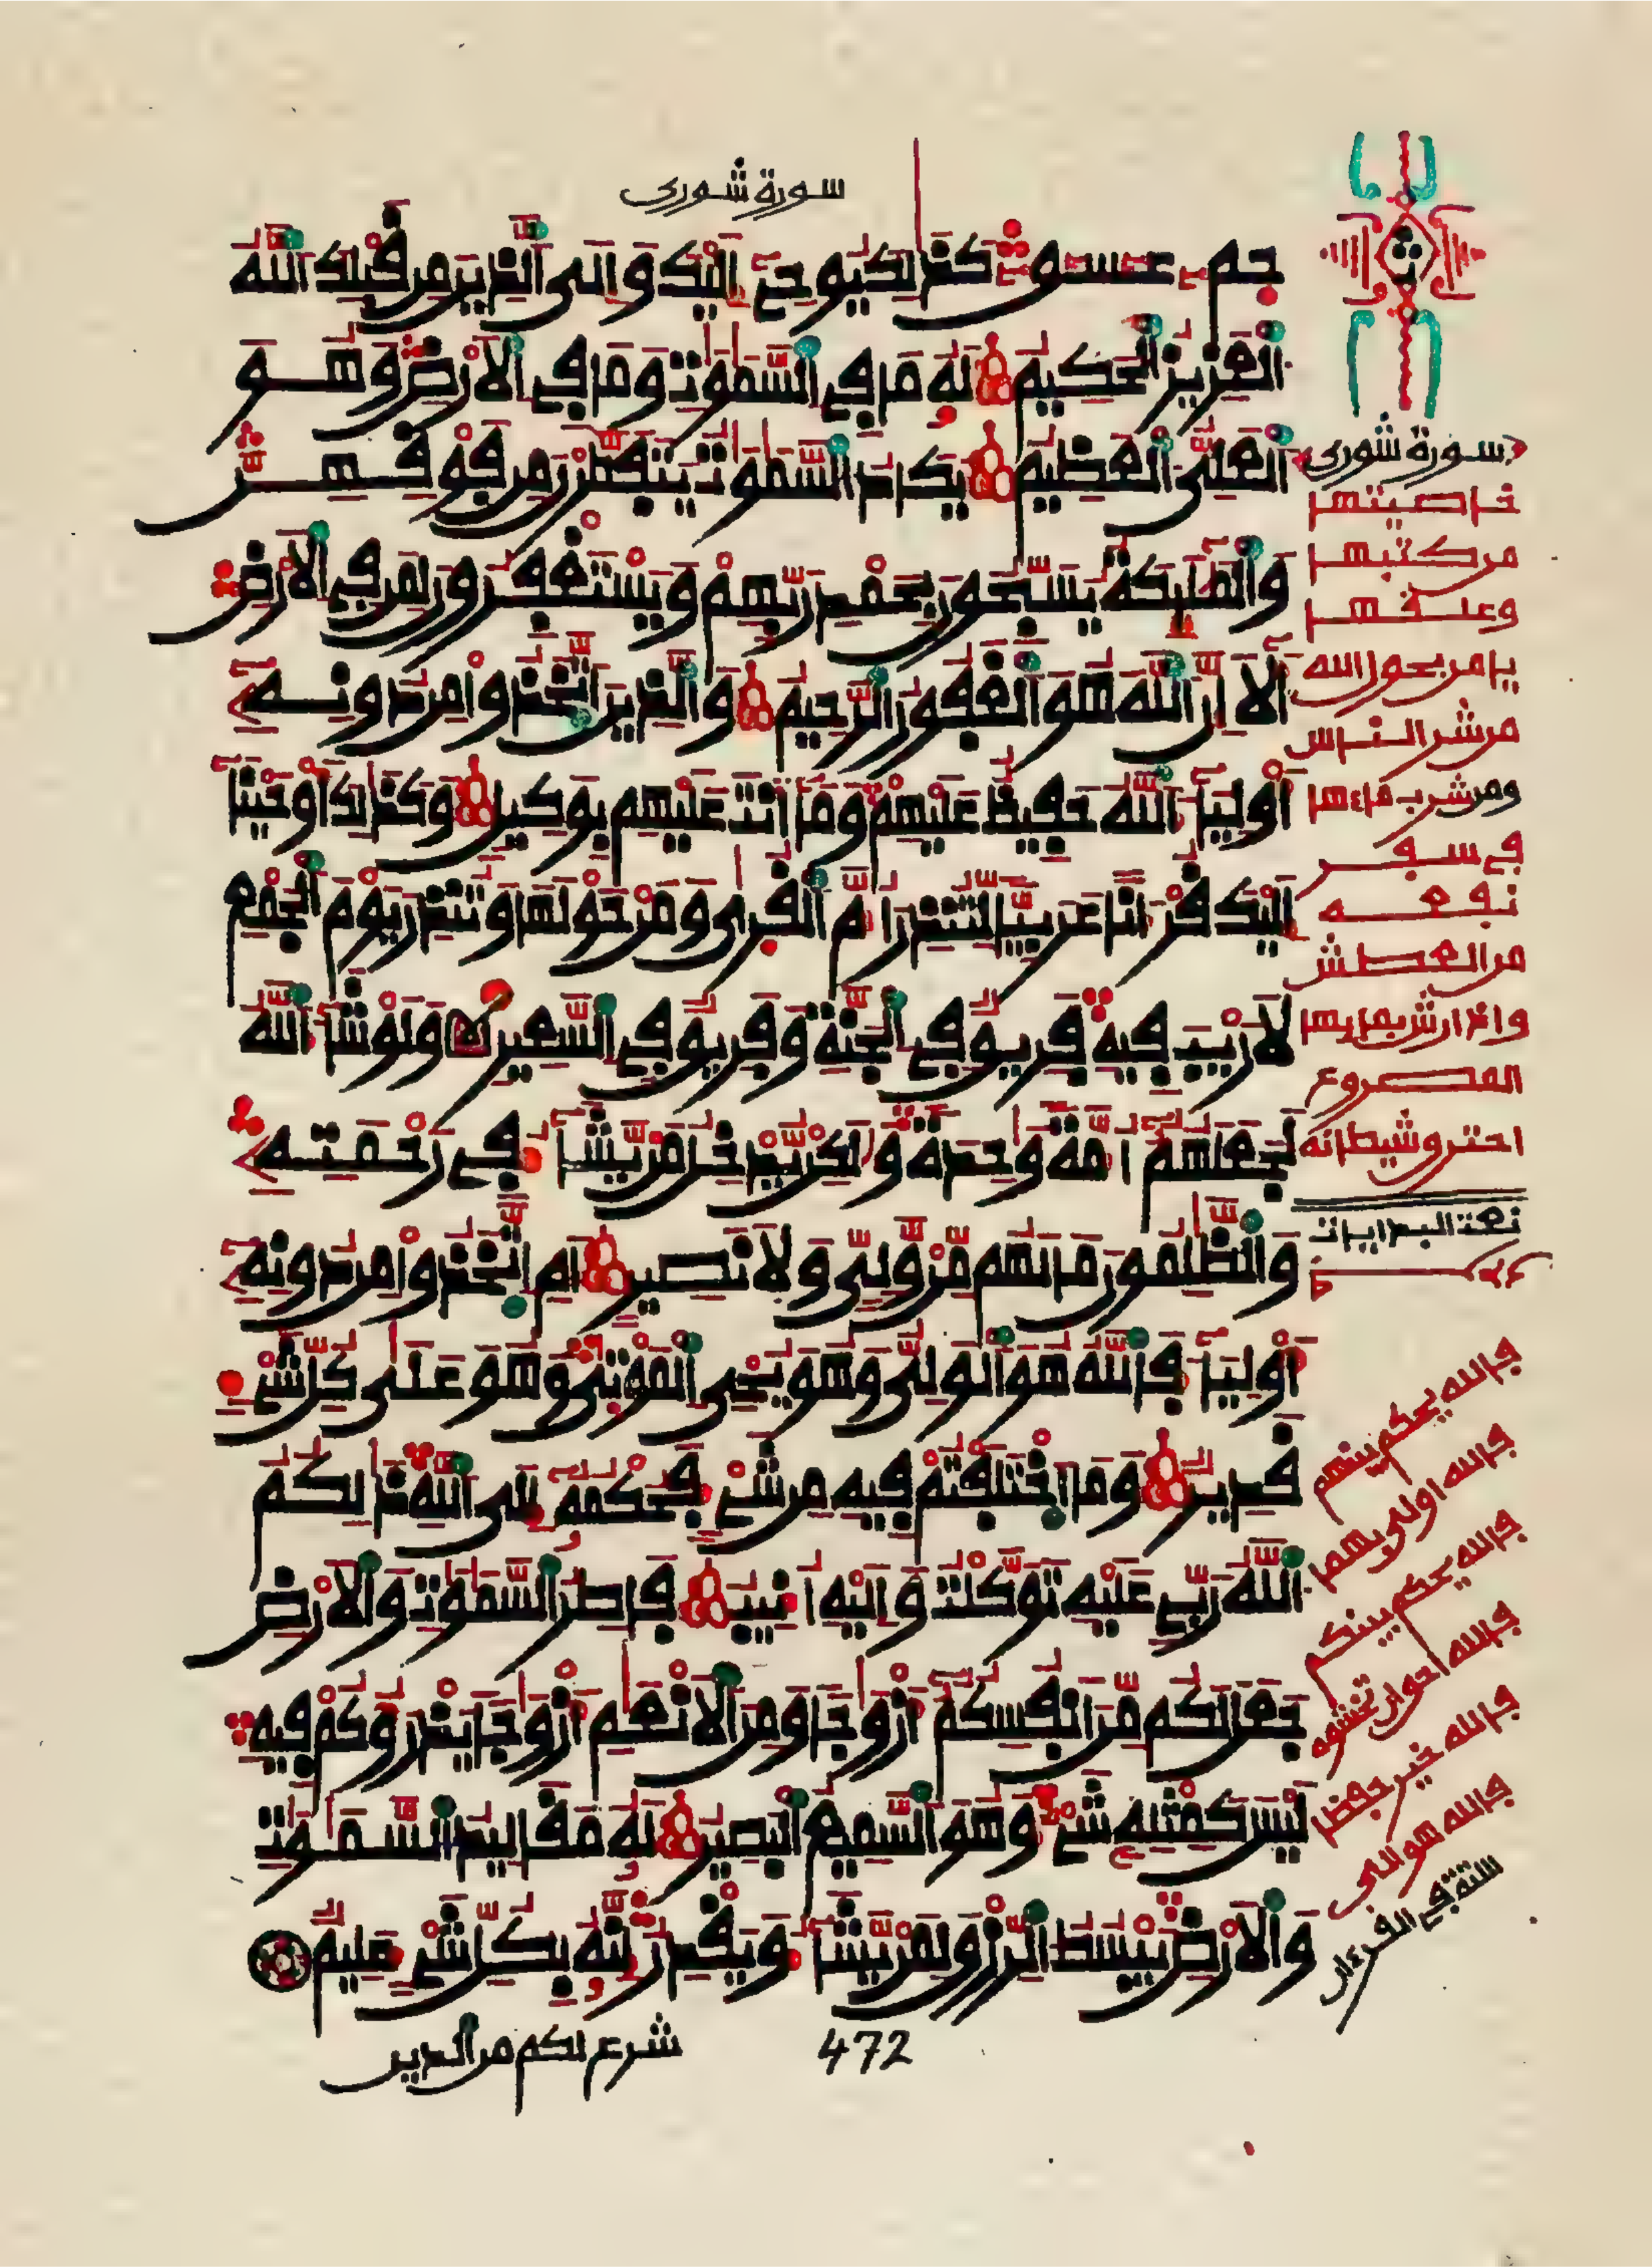 سورة شورى
حم عسق كذلك يوحى إليك وإلى الذين من قبلك الله
العزيز الحكيم له ما في السموت وما في الارض وهو
العلي العظيم يكاد السموت يتفطرن من فوقهن
والمليكة يسبحون بحمد ربهم ويستغفرون لمن في الارض
ألا إن الله هو الغفور الرحيم والذين اتخذوا من دونه
أوليا الله حفيظ عليهم وما أنت عليهم بوكيل وكذلك أوحينا
إليك قرانا عربيا لتنذر أم القرى ومن حولها وتنذر يوم الجمع
لا ريب فيه فريق في الجنة وفريق في السعير ولو شا الله
لجعلهم أمة وحدة ولكن يدخل من يشا في رحمته
والظلمون ما لهم من ولي ولا نصير أم اتخذوا من دونه
أوليا فالله هو الولي وهو يحي الموتى وهو على كل شي
قدير وما اختلفتم فيه من شي فحكمه إلى الله ذلكم
الله ربي عليه توكلت وإليه أنيب فاطر السموت والارض
جعل لكم من أنفسكم أزوجا ومن الانعم أزوجا يذروكم فيه
ليس كمثله شي وهو السميع البصير له مقاليد السموت
والارض يبسط الرزق لمن يشا ويقدر إنه بكل شي عليم
شرع لكم من الدين
472
سورة شورى
خاصيتها
من كتبها
وعلقها
يامن بحول الله
من شر الناس
ومن شرب ماءها
في سفر
نفعه
من العطش
واذا رش بمايها
المصروع
احترق شيطانه
فالله يحكم بينهم
فالله اولى بهما
فالله يحكم بينكم
فالله احق ان تخشوه
فالله خير حفظا
فالله هو الولي
ستة في القرءان